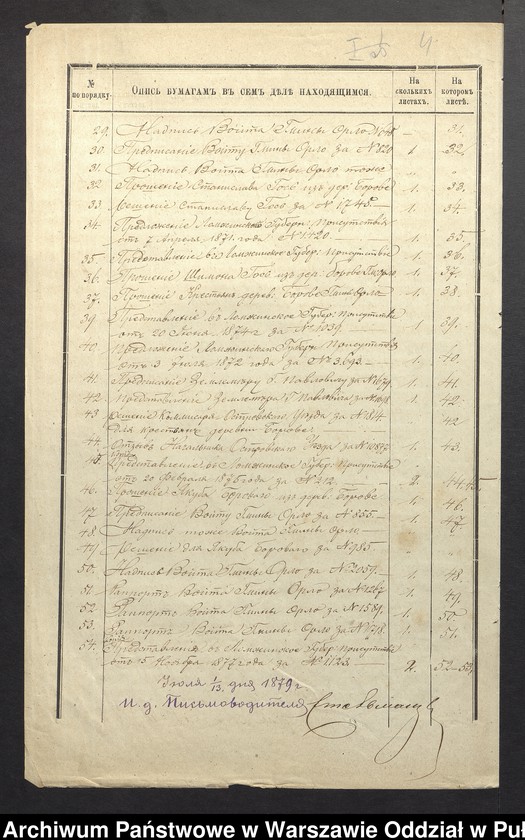 4
№ по порядку.
ОПИСЬ БУМАГАМЪ ВЪ СЕМЪ ДѢЛѢ НАХОДЯЩИМСЯ.
На сколькихъ листахъ.
На которомъ листѣ.
29. Надпись Войта Гмины Орло № — 31.
30. Предписаніе Войту Гмины Орло за № 820 1 32.
31. Надпись Войта Гмины Орло тоже " "
32. Прошеніе Станислава Госъ изъ дер: Борове 1. 33.
33. Рѣшеніе Станиславу Госъ за № 1745 — 1. 34.
34. Предложеніе Ломжинскаго Губерн: Присутствія
отъ 7 Апрѣля 1871 года № 1420. — 1. 35.
35. Представленіе въ Ломжинское Губер: Присутствіе 1. 36.
36. Прошеніе Шимона Госъ изъ дер: Борове 1. 37.
37. Прошеніе Крестьянъ дерев: Борове Гмины Орло 1. 38.
39 Представленіе въ Ломжинское Губер: Присутствіе
отъ 20 Іюня 1874 г за № 1039. 1. 39.
40. Предложеніе Ломжинскаго Губерн Присутствія
отъ 3 Іюля 1872 года за № 3693. — 1. 40.
41. Предписаніе Землемѣру Г. Павловичу за № 1679. 1. 41.
42. Представленіе Землемѣра Г Павловича за № 1. 42.
43 Рѣшеніе Коммисара Островскаго Уѣзда за № 814
для крестьянъ деревни Борове. " 42
44. Отзывъ Начальника Островскаго Уѣзда за № 10877 1. 43.
45. Представленіе въ Ломжинское Губер: Присутствіе
отъ 20 Февраля 1875 года за № 212. 2. 44.45
46. Прошеніе Якуба Бороваго изъ дерев: Борове 1. 46.
47. Предписаніе Войту Гмины Орло за № 555. — 1. 47.
48. Надпись тоже Войта Гмины Орло " "
49. Рѣшеніе для Якуба Бороваго за № 985 " "
50. Надпись Войта Гмины Орло за № 2059. — 1. 48.
51. Рапортъ Войта Гмины Орло за № 1267 1. 49.
52. Рапортъ Войта Гмины Орло за № 1589. 1. 50.
53. Рапортъ Войта Гмины Орло за № 1718. 1. 51.
54. Представленіе въ Ломжинское Губер Присутствіе
отъ 15 Ноября 1877 года за № 1123. — 2. 52-53.
Іюля 1/13 дня 1879 г
И. д. Письмоводителя
Archiwum Państwowe w Warszawie Oddział w Puł